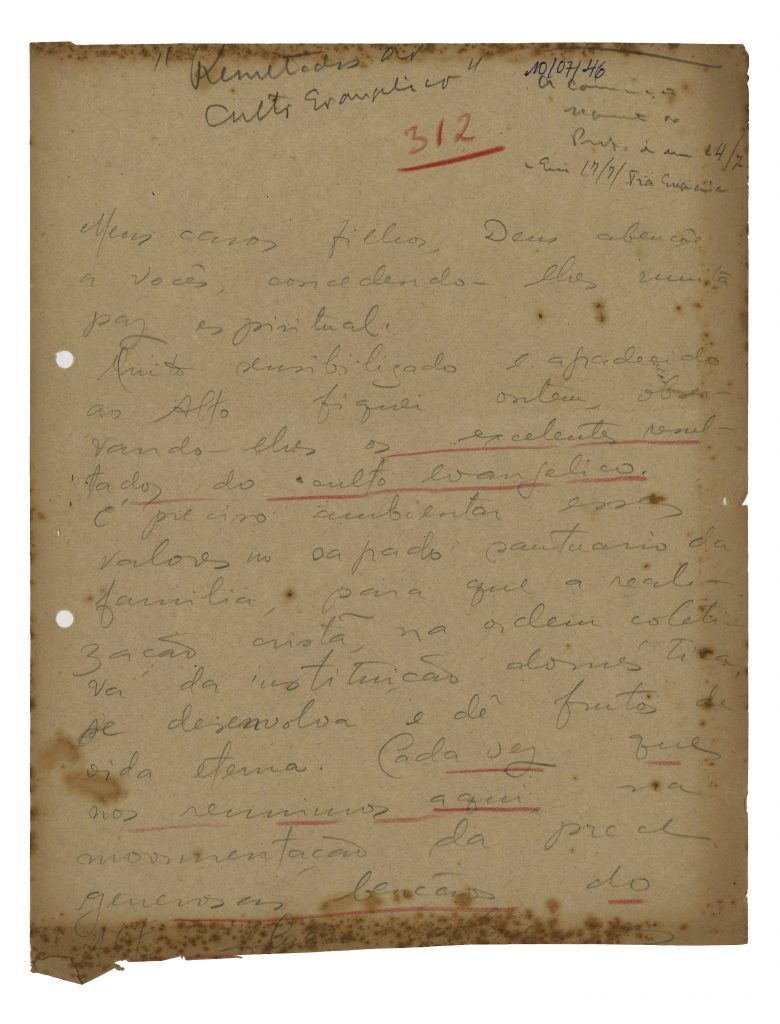 " Resultados do
Culto Evangelico "
10/07/46
312
24/7
Em 17/7/
Meus caros filhos, Deus abençõe
a vocês, concedendo-lhes muita
paz espiritual.
Muito sensibilizado e agradecido
ao Alto fiquei ontem, obser-
vando-lhes os excelentes resul-
tados do culto evangelico.
É preciso ambientar esses
valores no sagrado santuario da
familia, para que a reali-
zação cristã, na ordem coleti-
va da instituição doméstica,
se desenvolva e dê frutos de
vida eterna. Cada vez que
nos reunimos aqui na
movimentação da prece
generosas bençãos do